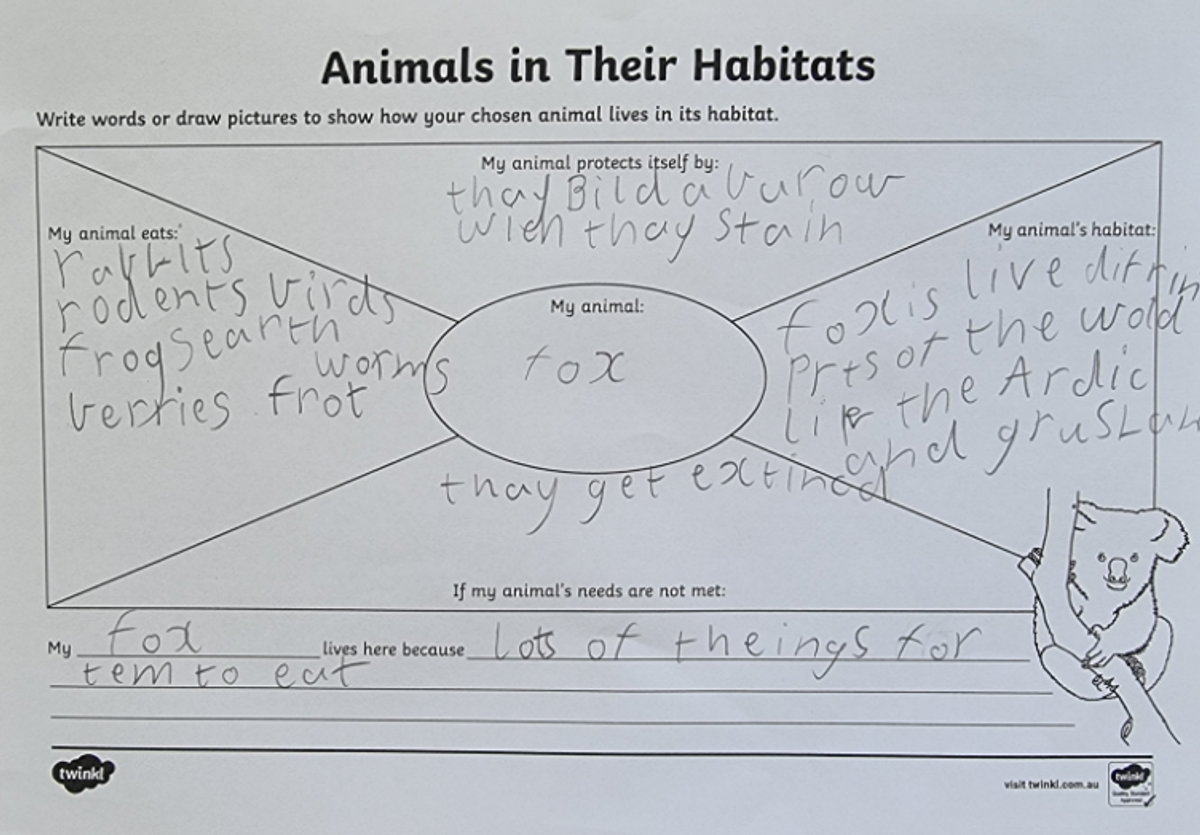 Animals in Their Habitats
Write words or draw pictures to show how your chosen animal lives in its habitat.
My animal protects itself by:
thay Bild a burow
wich thay stain
My animal eats:
rabbits
rodents birds
frogs earth
worms
berries frot
My animal:
fox
My animal's habitat:
foxis live difrin
prts of the wold
like the Ardic
and grusLan
thay get extincd
If my animal's needs are not met:
My fox lives here because lots of theings for
tem to eat
twinkl
visit twinkl.com.au
twinkl
Quality Standard
Approved